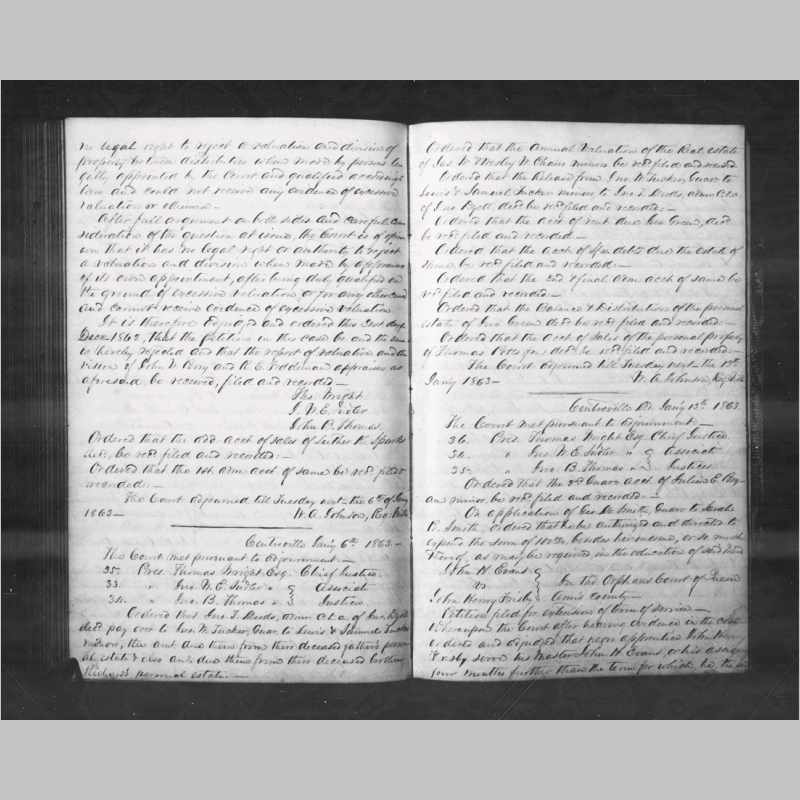 no legal right to reject a valuation and division of
property between distributees when made by persons le
gally appointed by the Court and qualified according to
law and could not receive any evidence of excessive
valuation or
After full argument on both sides and careful con
sideration of the question at issue, the Court is of opin
ion that it has no legal right or authority to reject
a valuation and division when made by appraisers
of its own appointment, after being duly qualified on
the ground of excessive valuation or for any other cause
and cannot receive evidence of excessive valuation
It is therefore adjudged and ordered this 23rd day of
Decr. 1862, that the petition in this case be and the same
is hereby rejected and that the report of valuation and di
vision of John W. Perry and R. E. appraisers as
aforesaid be received, filed and recorded —
Tho. Wright
J. W. E. Sudler
John B. Thomas
Ordered that the add. acct of sales of Luther the Sparks
decd. be recd. filed and recorded —
Ordered that the 1st. adm acct of same be recd. filed &
recorded —
The Court adjourned till Tuesday next the 6th of Jany
1863 — W. A. Johnson, Reg. Wills
Centreville Jany 6th 1863 —
The Court met pursuant to adjournment —
35. Pres. Thomas Wright Esq. Chief Justice
33. " Jas. W. E. Sudler " } Associate
34. " Jno. B. Thomas " } Justices
Ordered that Jno. T. Dodds, admr. &c of Jno.
decd pay over to Jno. W. Tucker, Guar. to Lewis & Samuel Tucker
minors, the amt due them from their deceased father's person
al estate & also amt due them from their deceased brother
Richard's personal estate —
Ordered that the annual valuation of the Real estate
of Jas W & Wesley W. Chairs minors be recd. filed and record.
Ordered that the Release from Jno W Tucker, Guar to
Lewis & Samuel Tucker minors, to Jno T. Dodds, adm &c
of Jno decd be recd. filed and recorded —
Ordered that the acct of rent due Jno Green, decd
be recd. filed and recorded —
Ordered that the acct of Sp. debts due the estate of
same be recd. filed and recorded —
Ordered that the 2nd & final adm acct of same be
recd. filed and recorded —
Ordered that the Balance & Distribution of the personal
estate of Jno Green decd be recd. filed and recorded —
Ordered that the acct of sales of the personal property
of Thomas decd be recd. filed and recorded —
The Court adjourned till Tuesday next the 13th
Jany 1863 — W. A. Johnson, Reg Wills
Centreville Md. Jany 13th 1863
The Court met pursuant to adjournment —
36. Pres. Thomas Wright Esq. Chief Justice
34. " Jno. W. E. Sudler " } Associate
35. " Jno. B. Thomas " } Justices
Ordered that the 2d Guar. acct. of Julius E. Bry
an minor be recd. filed and recorded —
On application of Geo. M. Smith, Guar to Sarah
E. Smith, ordered that he be authorized and directed to
expend the sum of besides her income, or so much
thereof, as may be required in the education of said ward
John H. Evans }
vs } In the Orphans Court of Queen
John Henry Frisby } Anne's County —
Petition filed for extension of term of service —
Whereupon the Court after hearing evidence in the case
ordered and adjudged that negro apprentice John Henry
Frisby serve his master John H Evans, or his assigns
four months further than the term for which he, the said